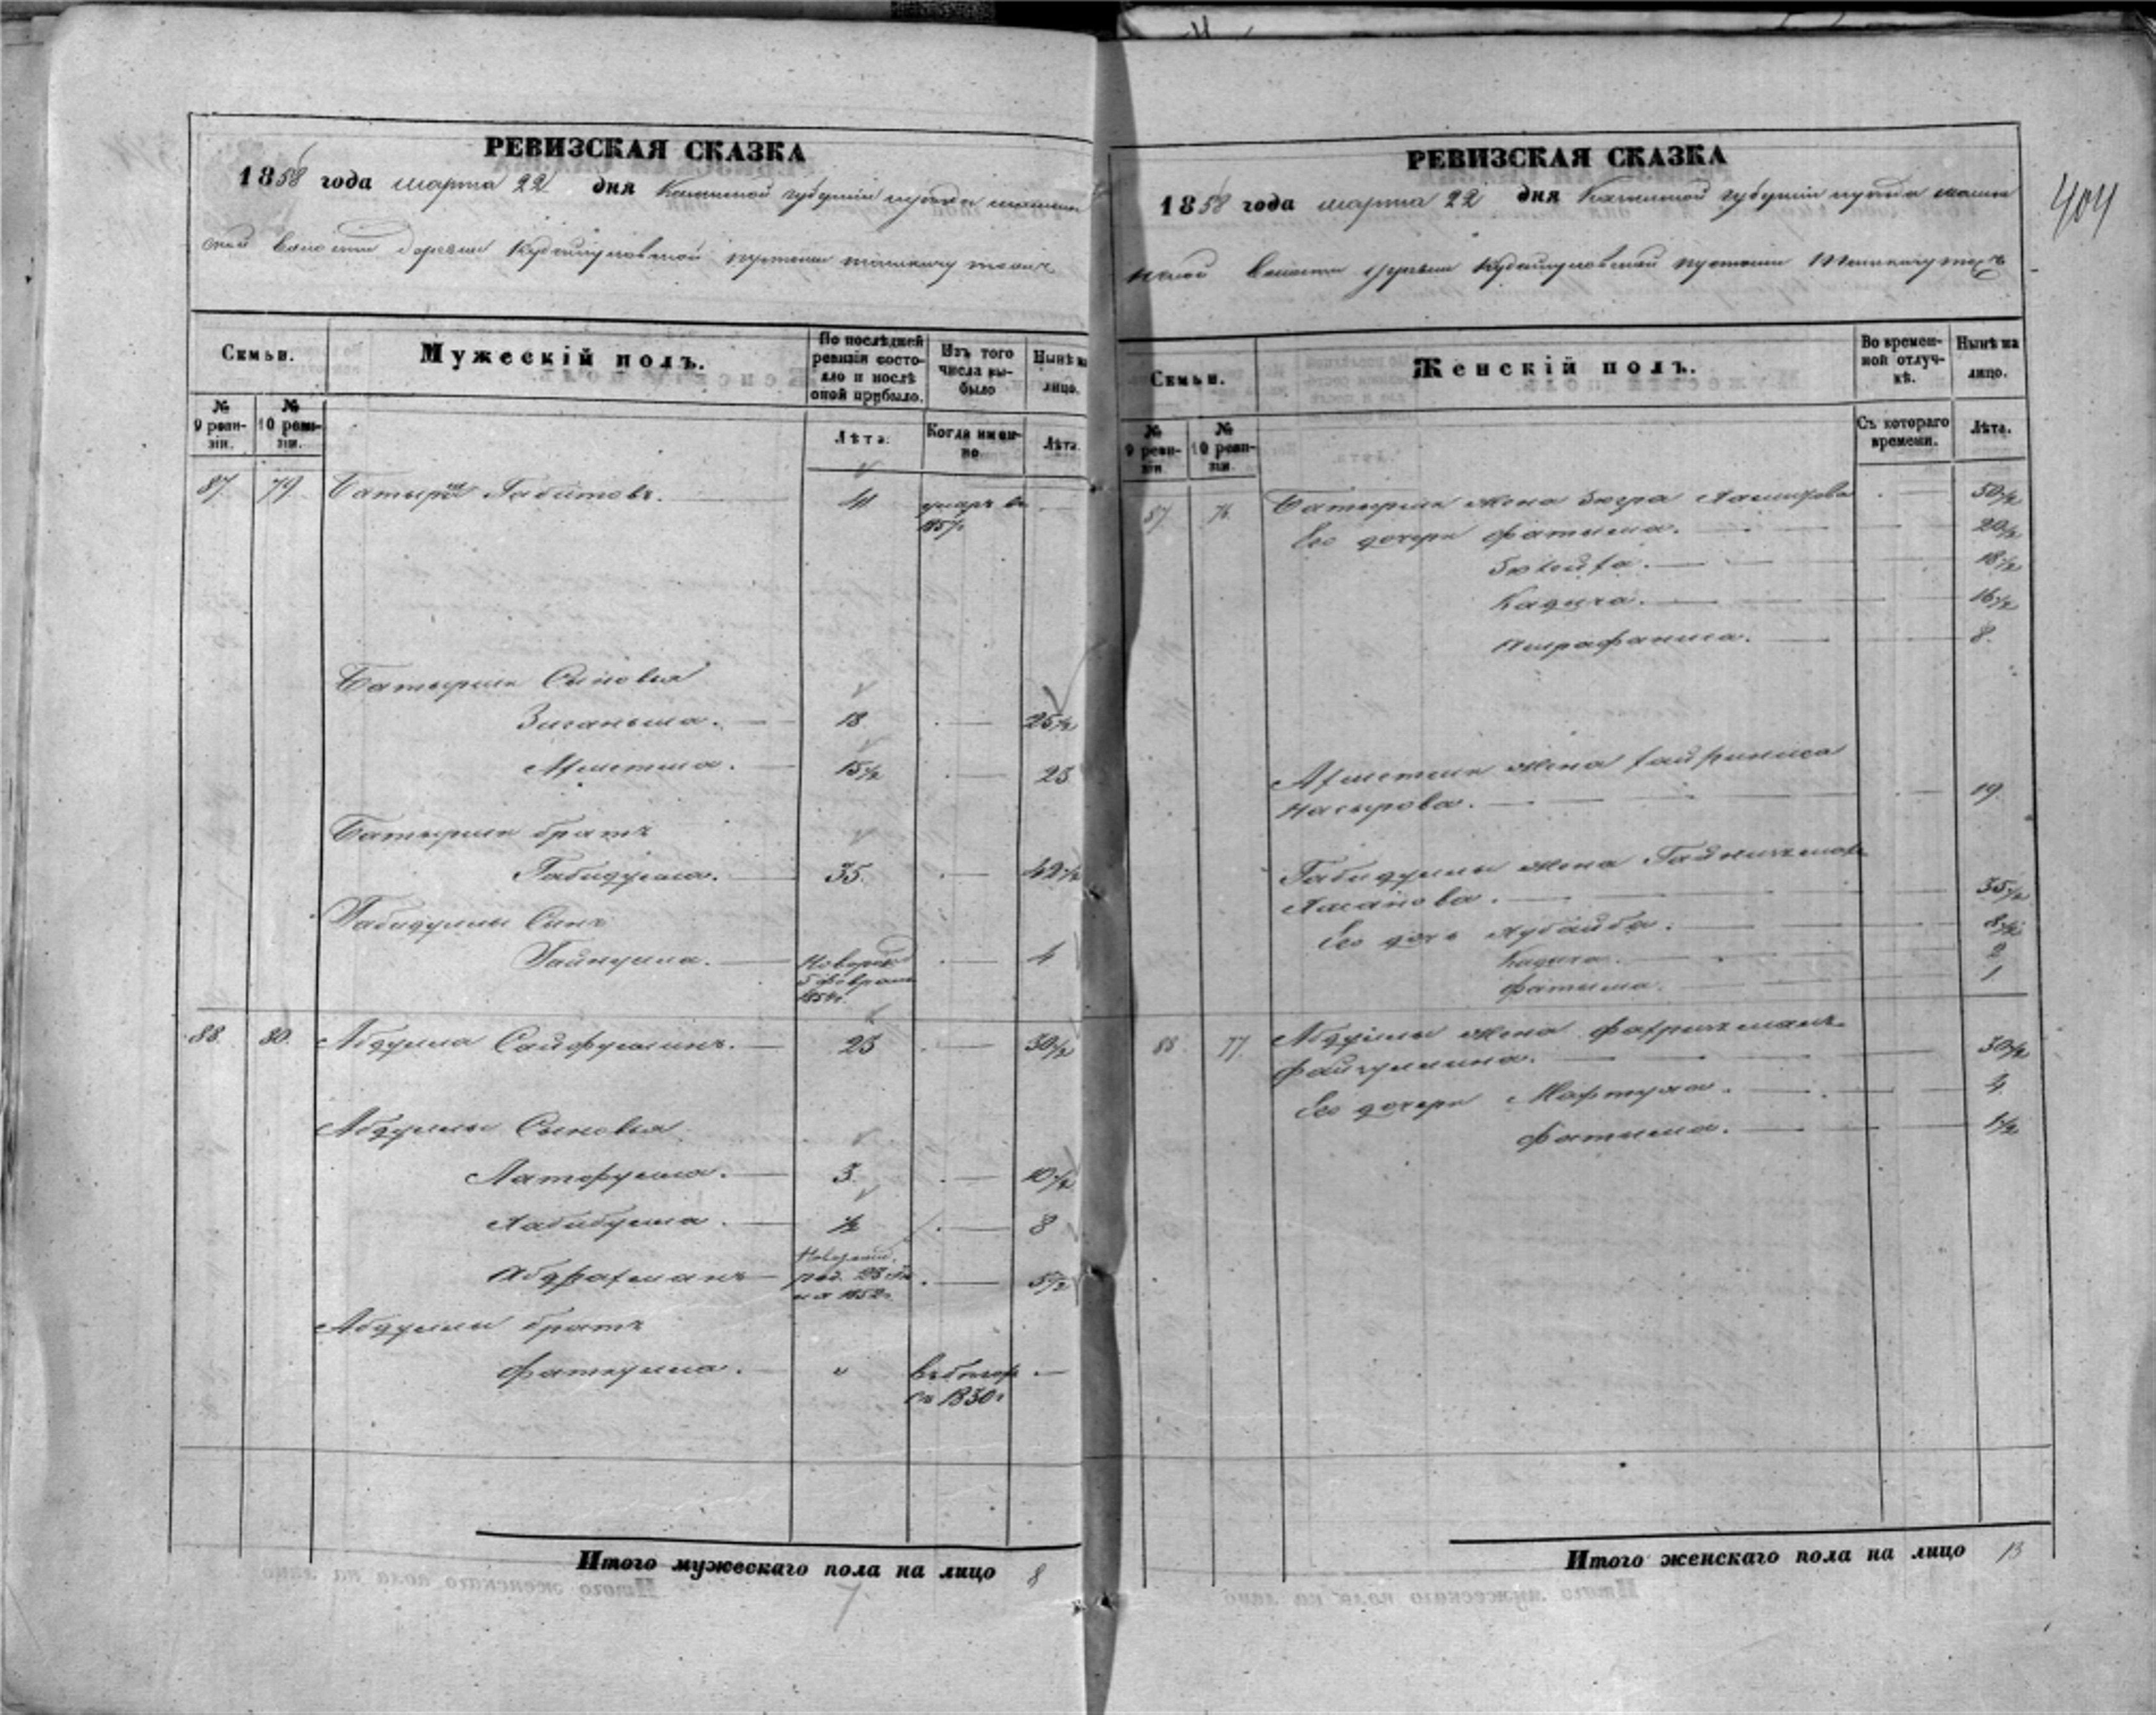 404
РЕВИЗСКАЯ СКАЗКА
1858 года марта 22 дня Казанской губернии
волости деревни
Семьи.
Мужескій полъ.
По послѣдней ревизіи состояло и послѣ оной прибыло.
Изъ того числа выбыло
Нынѣ на лицо.
№ 9 ревизіи.
№ 10 ревизіи.
Лѣта.
Когда именно
Лѣта.
87 79 Батырша Габитовъ. 41 умеръ въ 1857г.
Батырши Сыновья
Зиганьша. 18 25½
Ахметша. 15½ 23
Батырши братъ
Габидулла. 35. 42½
Габидуллы Сынъ
Гайнулла. Новорожд 5 февраля 1854г. 4
88. 80. Абдулла Сайфуллинъ. 23 30½
Абдуллы Сыновья
Латфулла. 3. 10½
Хабибулла. ½ 8
Абдрахманъ 5½
Абдуллы братъ
Фаткулла. " съ 1850г
Итого мужескаго пола на лицо 8
7
РЕВИЗСКАЯ СКАЗКА
1858 года марта 22 дня Казанской губернии
волости деревни
Семьи.
Женскій полъ.
Во временной отлучкѣ.
Нынѣ на лицо.
№ 9 ревизіи
№ 10 ревизіи
Съ котораго времени.
Лѣта.
87. 76. Батырши жена Зюгра 50½
Его дочери Фатыма. 20½
18½
Кадича. 16½
8.
Ахметши жена
Насырова. 19.
Габидуллы жена
35½
Его дочь Хубайба. 8½
Кадича. 2
Фатыма. 1
88. 77. Абдуллы жена
Файзуллина. 30½
Его дочери 4
Фатыма. 1½
Итого женскаго пола на лицо 13